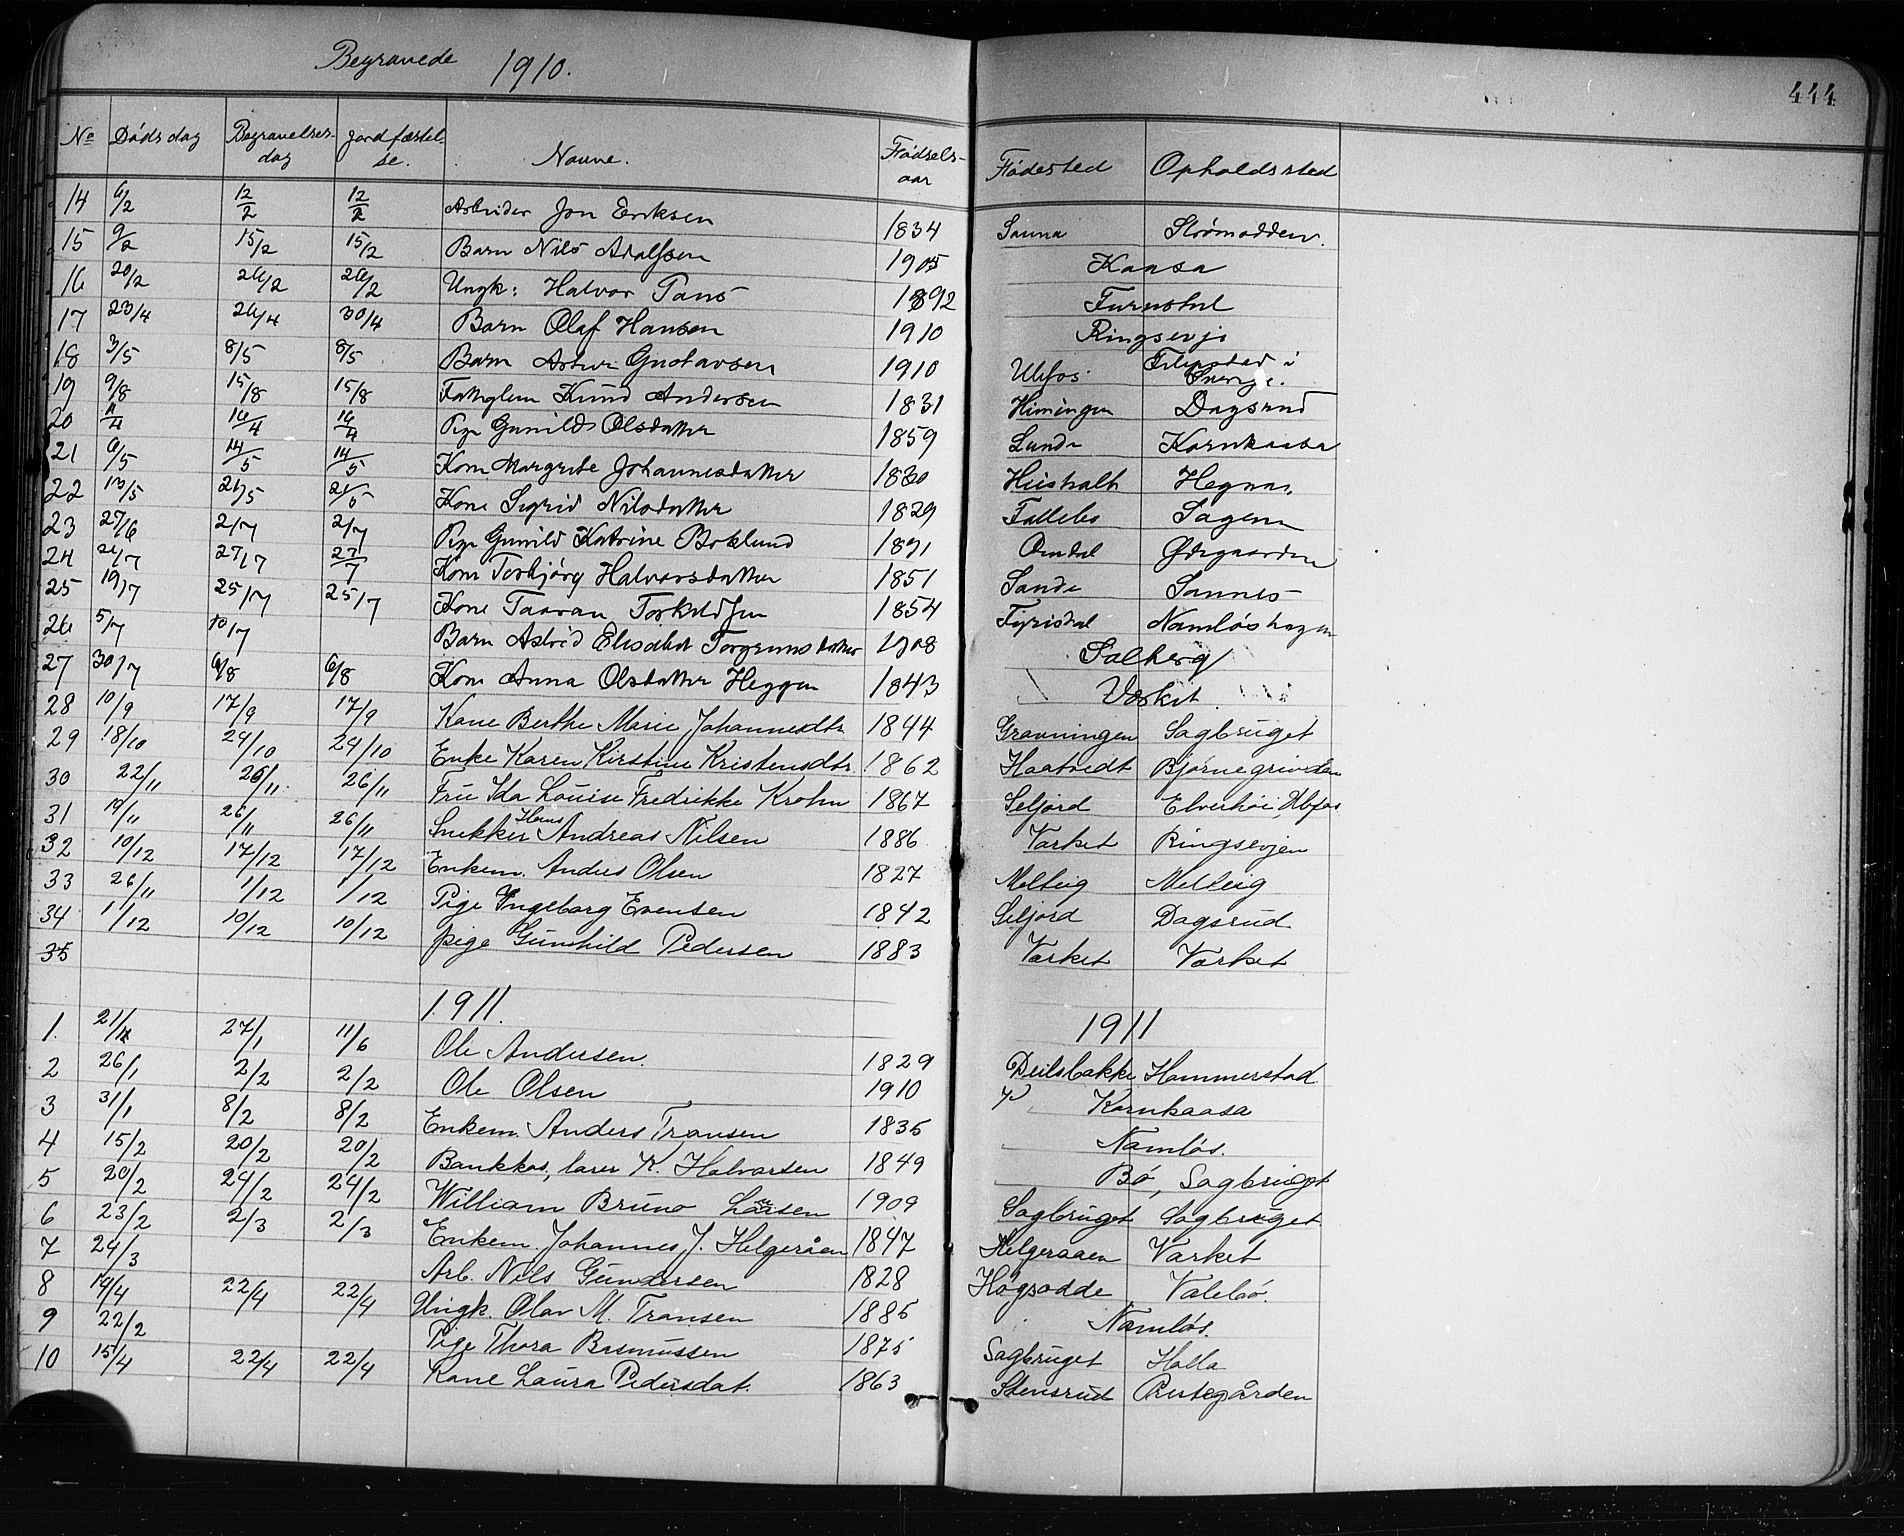 Begravede 1910.
444
No Dødsdag Begravelses- dag Jordfæstel- se. Navne. Fødsels- aar Fødested Opholdssted
14 6/2 12/2 12/2 Arbeider Jon Eriksen 1834 Sauna Strømodden.
15 9/2 15/2 15/2 Barn Nils Adolfsen 1905 Kaasa
16 20/2 26/2 26/2 Ungk: Halvor 1892
17 23/4 26/4 30/4 Barn Olaf Hansen 1910 Ringsevje
18 3/5 8/5 8/5 Barn Gustavsen 1910 Ulefos i Sverige.
19 9/8 15/8 15/8 Knud Andersen 1831 Himingen Dagsrud
20 11/4 16/4 16/4 Pige Gunild Olsdatter 1859 Lunde Kornkaasa
21 6/5 14/5 14/5 Kone Margrete Johannesdatter 1830 Hegna
22 13/5 21/5 21/5 Kone Sigrid Nilsdatter 1829 Sagene
23 27/6 2/7 2/7 Pige Gunild Katrine Boklund Omdal Ødegaarden
24 21/7 27/7 27/7 Kone Torbjørg Halvorsdatter 1851 Sande Sannes
25 19/7 25/7 25/7 Kone Taaran 1854 Fyrisdal Namløshagen
26 5/7 10/7 Barn Astrid Elisabet Torgrimsdatter 1908 Solberg
27 30/7 6/8 6/8 Kone Anna Olsdatter Heggen 1843 Værket
28 10/9 17/9 17/9 Kone Berthe Marie Johannesdtr. 1844 Gravningen Sagbruget
29 18/10 24/10 24/10 Enke Karen Kirstine Kristensdtr. 1862 Haatvedt Bjørnegrinden
30 22/11 26/11 26/11 Fru Ida Louise Fredrikke Krohn 1867 Seljord Elverhøi, Ulefos
31 19/11 26/11 26/11 Snekker Hans Andreas Nilsen 1886 Værket Ringsevjen
32 10/12 17/12 17/12 Enkem. Anders Olsen 1827 Melteig Melteig
33 26/11 1/12 1/12 Pige Ingeborg Evensen 1842 Seljord Dagsrud
34 1/12 10/12 10/12 pige Gunhild Pedersen 1883 Værket Værket
35
1911. 1911
1. 27/1 11/6 Ole Andersen. 1829 Deilsbakke Hammerstad.
2 26/1 2/2 2/2 Ole Olsen 1910 Kornkaasa
3 31/1 8/2 8/2 Enkem. Anders Transen 1835 Namløs.
4 15/2 20/2 20/2 K. Halvorsen 1849 Bø, Sagbruget
5 20/2 24/2 24/2 William Bruno Larsen 1909 Sagbruget Sagbruget
6 23/2 2/3 2/3 Enkem. Johannes J. Helgeråen 1847 Helgeraaen Værket
7 24/3 Arb. Nils Gundersen 1828 Høgsodde Valebø.
8 14/4 22/4 22/4 Ungk. Olav M. Transen 1885 Namløs.
9 22/2 Pige Thora Rasmussen 1875 Sagbruget Holla
10 15/4 22/4 22/4 Kone Laura Pedersdat. 1863 Stensrud